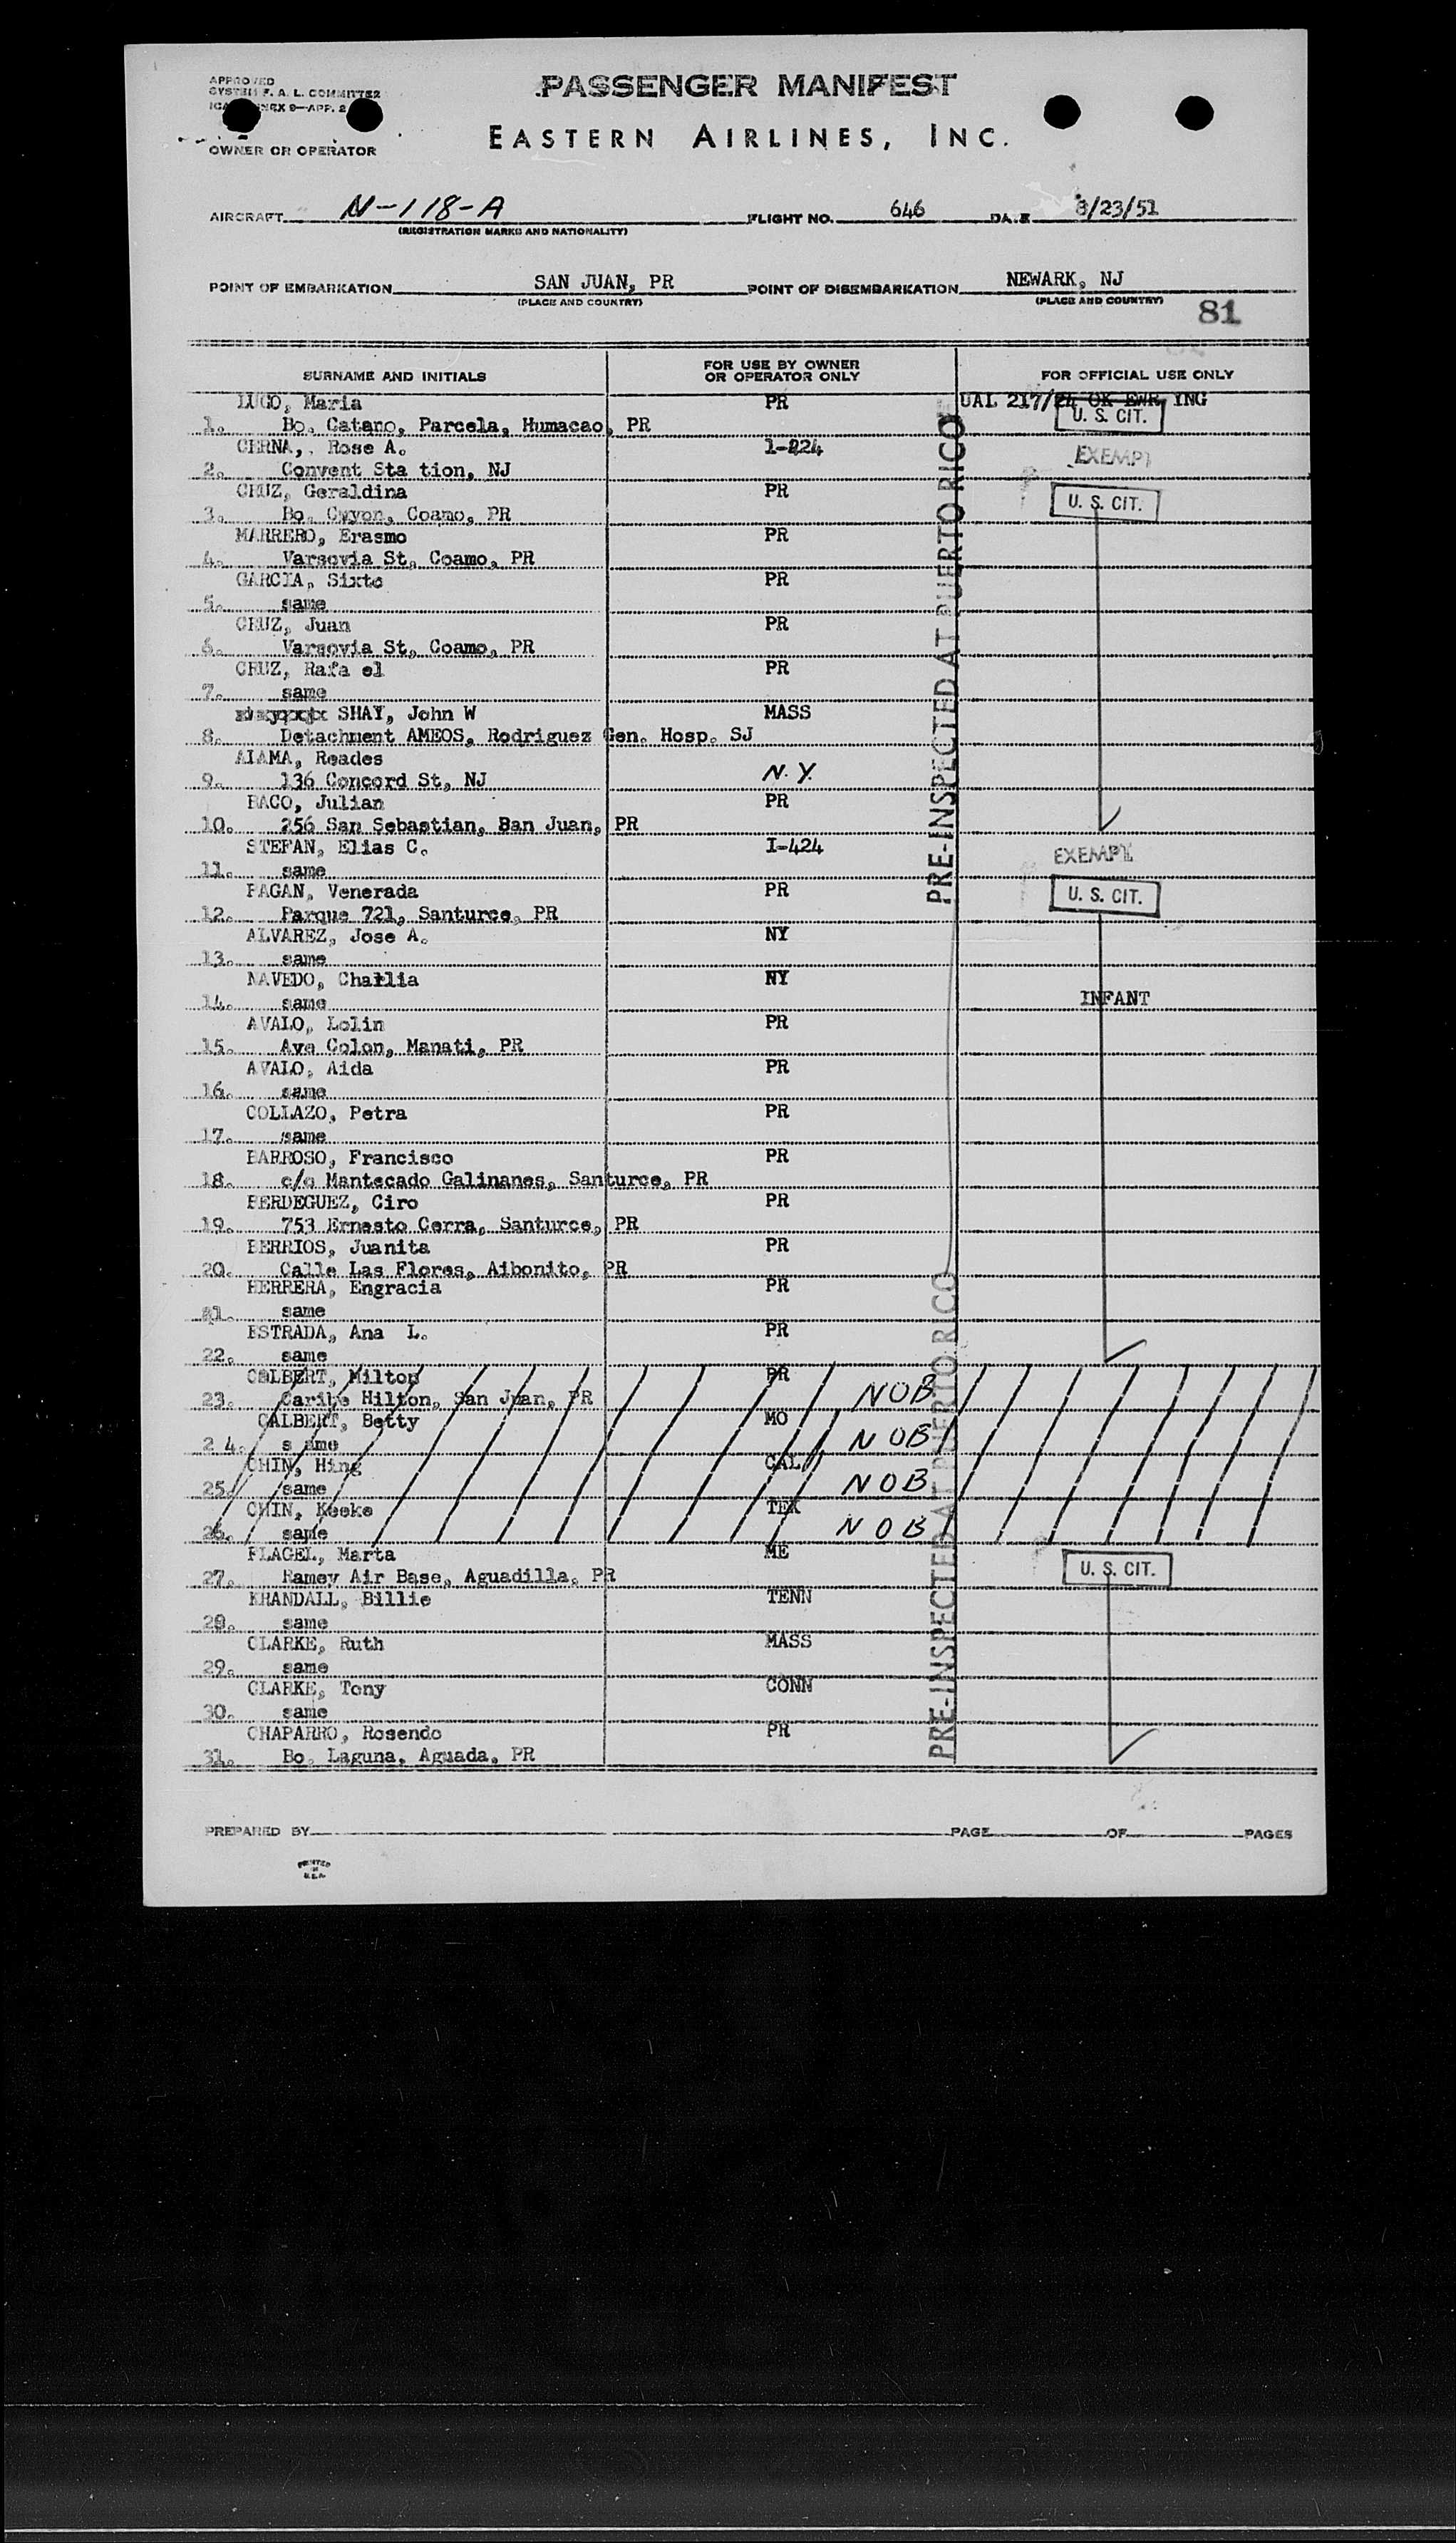 APPROVED
SYSTEM F. A. L. COMMITTEE
9—APP. 2
PASSENGER MANIFEST
EASTERN AIRLINES, INC.
OWNER OR OPERATOR
AIRCRAFT N-118-A FLIGHT NO. 646 DATE 8/23/51
(REGISTRATION MARKS AND NATIONALITY)
POINT OF EMBARKATION SAN JUAN, PR POINT OF DISEMBARKATION NEWARK, NJ
(PLACE AND COUNTRY) (PLACE AND COUNTRY)
81
SURNAME AND INITIALS FOR USE BY OWNER OR OPERATOR ONLY FOR OFFICIAL USE ONLY
LUGO, Maria PR UAL 217/24 OK EWR YNG
1. Bo. Catano, Parcela, Humacao, PR U. S. CIT.
CERNA,. Rose A. 1-224 EXEMPT
2. Convent Sta tion, NJ
CRUZ, Geraldina PR U. S. CIT.
3. Bo. Cuyon, Coamo, PR
MARRERO, Erasmo PR
4. Varsovia St, Coamo, PR
GARCIA, Sixto PR
5. same
CRUZ, Juan PR
6. Varsovia St, Coamo, PR
CRUZ, Rafa el PR
7. same
SHAY, John W MASS
8. Detachment AMEOS, Rodriguez Gen. Hosp. SJ
ALAMA, Reades
9. 136 Concord St, NJ N.Y.
BACO, Julian PR
10. 256 San Sebastian, San Juan, PR
STEFAN, Elias C. I-424 EXEMPT
11. same
PAGAN, Venerada PR U. S. CIT.
12. Parque 721, Santurce, PR
ALVAREZ, Jose A. NY
13. same
NAVEDO, Charlia NY
14. same INFANT
AVALO, Lolin PR
15. Ave Colon, Manati, PR
AVALO, Aida PR
16. same
COLLAZO, Petra PR
17. same
BARROSO, Francisco PR
18. c/o Mantecado Galinanes, Santurce, PR
BERDEGUEZ, Ciro PR
19. 753 Ernesto Cerra, Santurce, PR
BERRIOS, Juanita PR
20. Calle Las Flores, Aibonito, PR
HERRERA, Engracia PR
21. same
ESTRADA, Ana L. PR
22. same
CALBERT, Milton PR
23. Caribe Hilton, San Juan, PR NOB
CALBERT, Betty MO
2 4. s ame NOB
CHIN, Hing CAL
25. same NOB
CHIN, Keeke TEX
26. same NOB
FLAGEL, Marta ME U. S. CIT.
27. Ramey Air Base, Aguadilla, PR
KRANDALL, Billie TENN
28. same
CLARKE, Ruth MASS
29. same
CLARKE, Tony CONN
30. same
CHAPARRO, Rosendo PR
31. Bo. Laguna, Aguada, PR
PRE-INSPECTED AT PUERTO RICO
PRE-INSPECTED AT PUERTO RICO
PREPARED BY PAGE OF PAGES
PRINTED
IN
U.S.A.